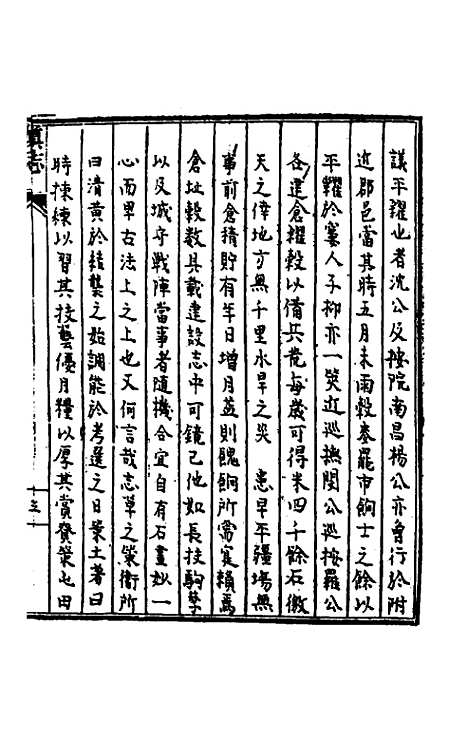 議平糴也者沈公及按院南昌楊公亦魯行於附
近郡邑當其時五月未雨穀泰罷市餉士之餘以
平糴於寠人子抑亦一筴近巡撫閔公巡按羅公
各建倉糴穀以備兵荒每歲可得米四千餘石徼
天之倖地方無千里水旱之災 患早平疆場無
事前倉積貯有年日增月益則餽餉所需寔賴焉
倉址穀數具載建設志中可鏡已他如長技駒孳
以及城守戰陣當事者隨機合宜自有石畫姒一
心而畢古法上之上也又何言哉志草之策衛所
曰清黄於結襲之始調能於考選之日策土著曰
時揀練以習其技藝優月糧以厚其賞賚策屯田
滇志
十五